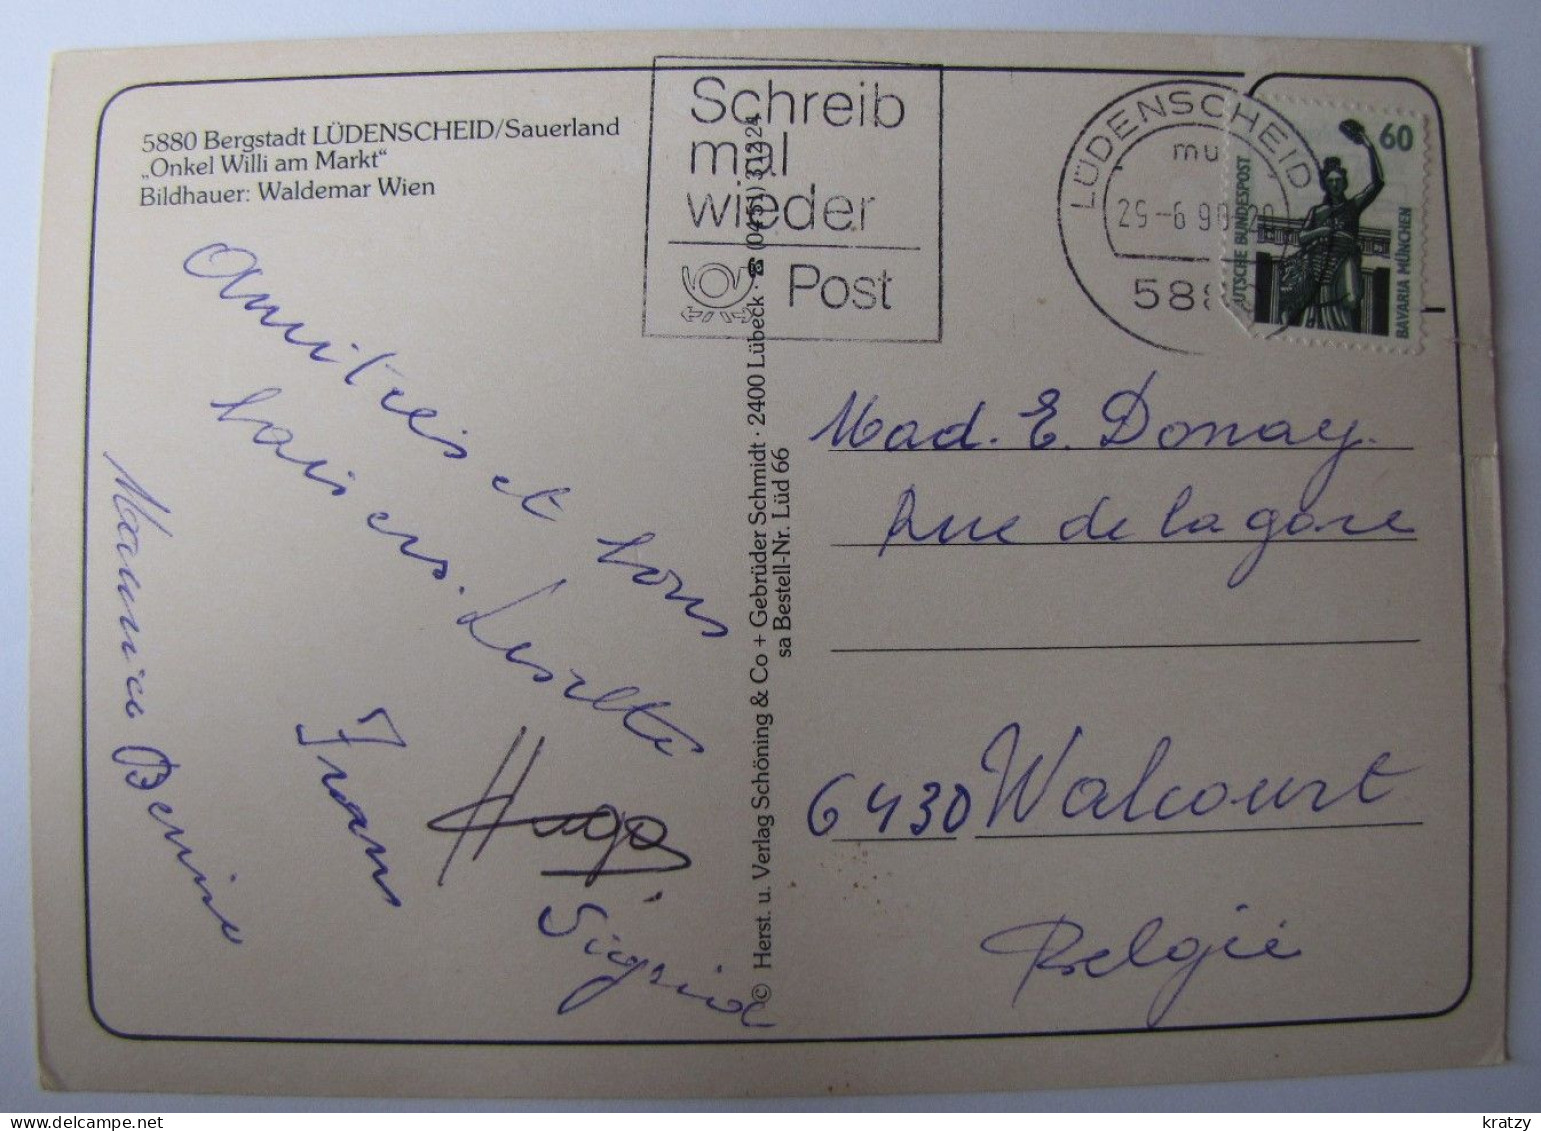 5880 Bergstadt LÜDENSCHEID/Sauerland
„Onkel Willi am Markt“
Bildhauer: Waldemar Wien
Schreib
mal
wieder
Post
LÜDENSCHEID
mu
29-6 90
588
60
DEUTSCHE BUNDESPOST
BAVARIA MÜNCHEN
Amitiés et bons
baisers. Liselette
Hugo
Sigrid
© Herst. u. Verlag Schöning & Co + Gebrüder Schmidt · 2400 Lübeck · ☎ (0451) 31224
sa Bestell-Nr. Lüd 66
Mad. E. Donay.
Rue de la gare
6430 Walcourt
Belgie
kratzy